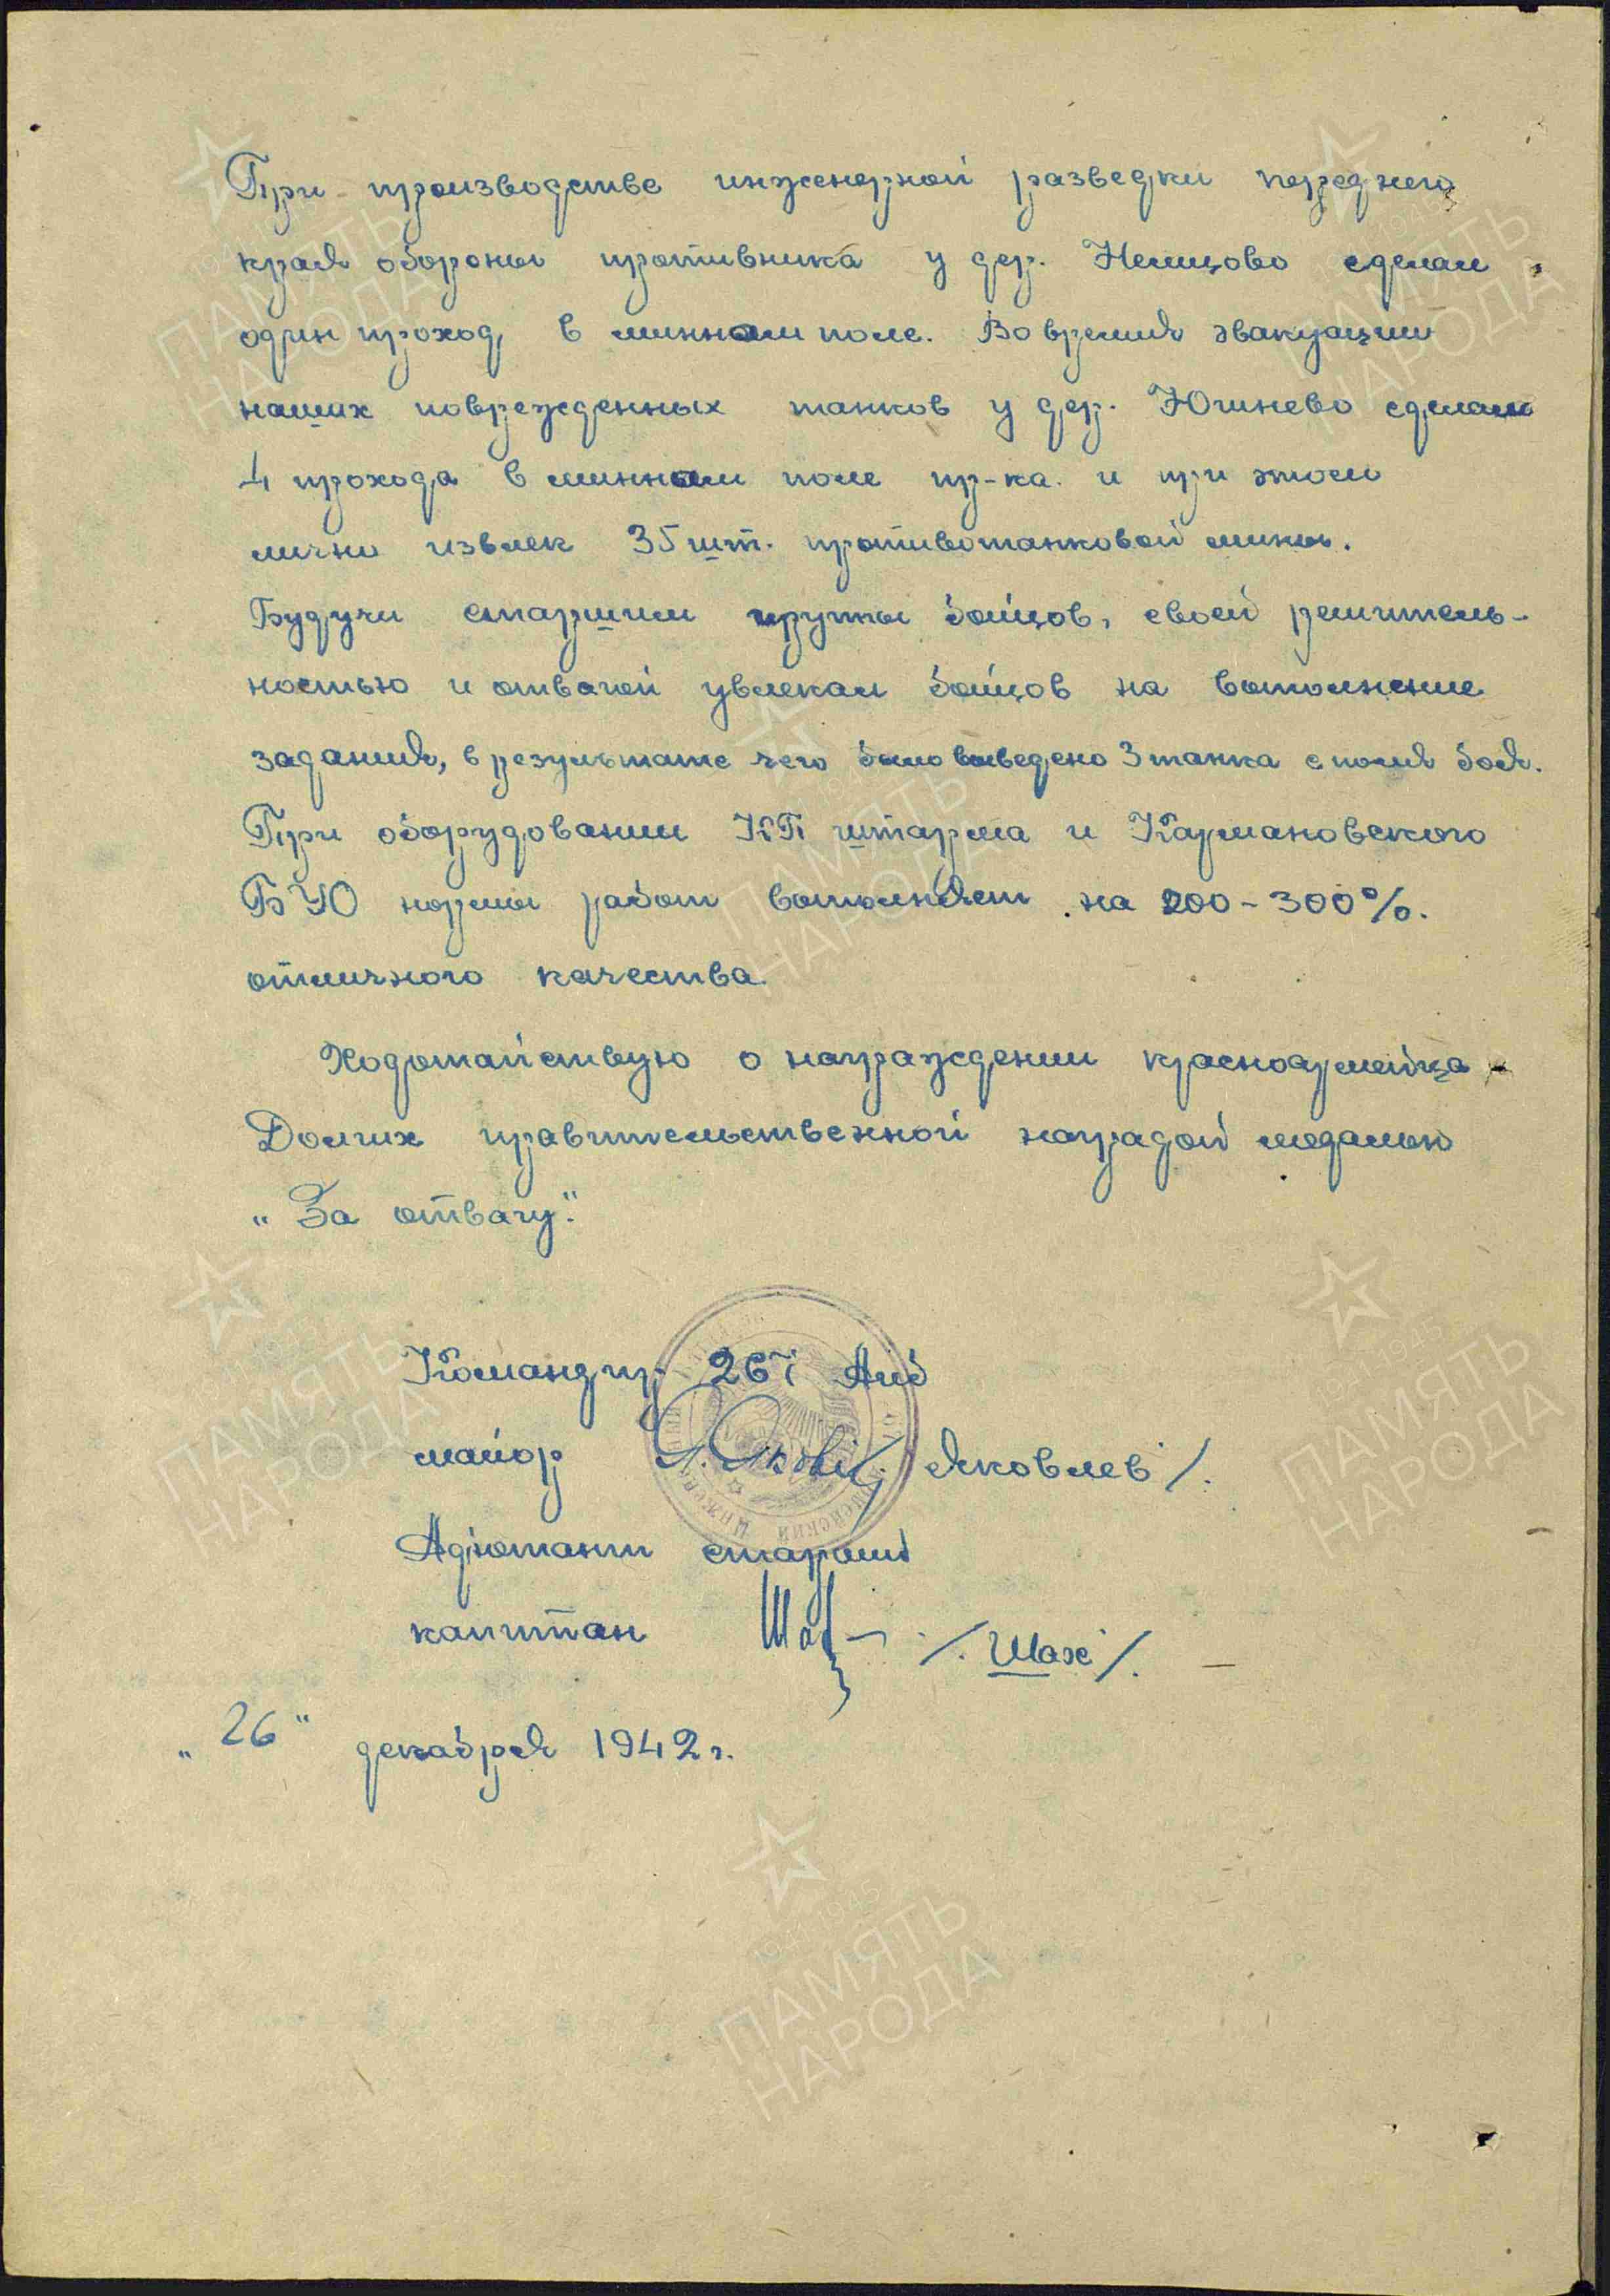 При производстве инженерной разведки переднего
края обороны противника у дер. Немцово сделал
один проход в минном поле. Во время эвакуации
наших поврежденных танков у дер. Юшнево сделал
4 прохода в минном поле пр-ка. и при этом
лично извлек 35 шт. противотанковой мины.
Будучи старшим группы бойцов, своей решитель-
ностью и отвагой увлекал бойцов на выполнение
задания, в результате чего было выведено 3 танка с поля боя.
При оборудовании КП штарма и Кармановского
БУО нормы работ выполняет на 200-300%.
отличного качества.
Ходотайствую о награждении красноармейца
Долгих правительственной наградой медалью
„За отвагу".
Командир 267 Аиб
майор Яковлев/.
Адютант старший
капитан /.Шах/.
„26" декабря 1942 г.
ПАМЯТЬ
НАРОДА
1941-1945